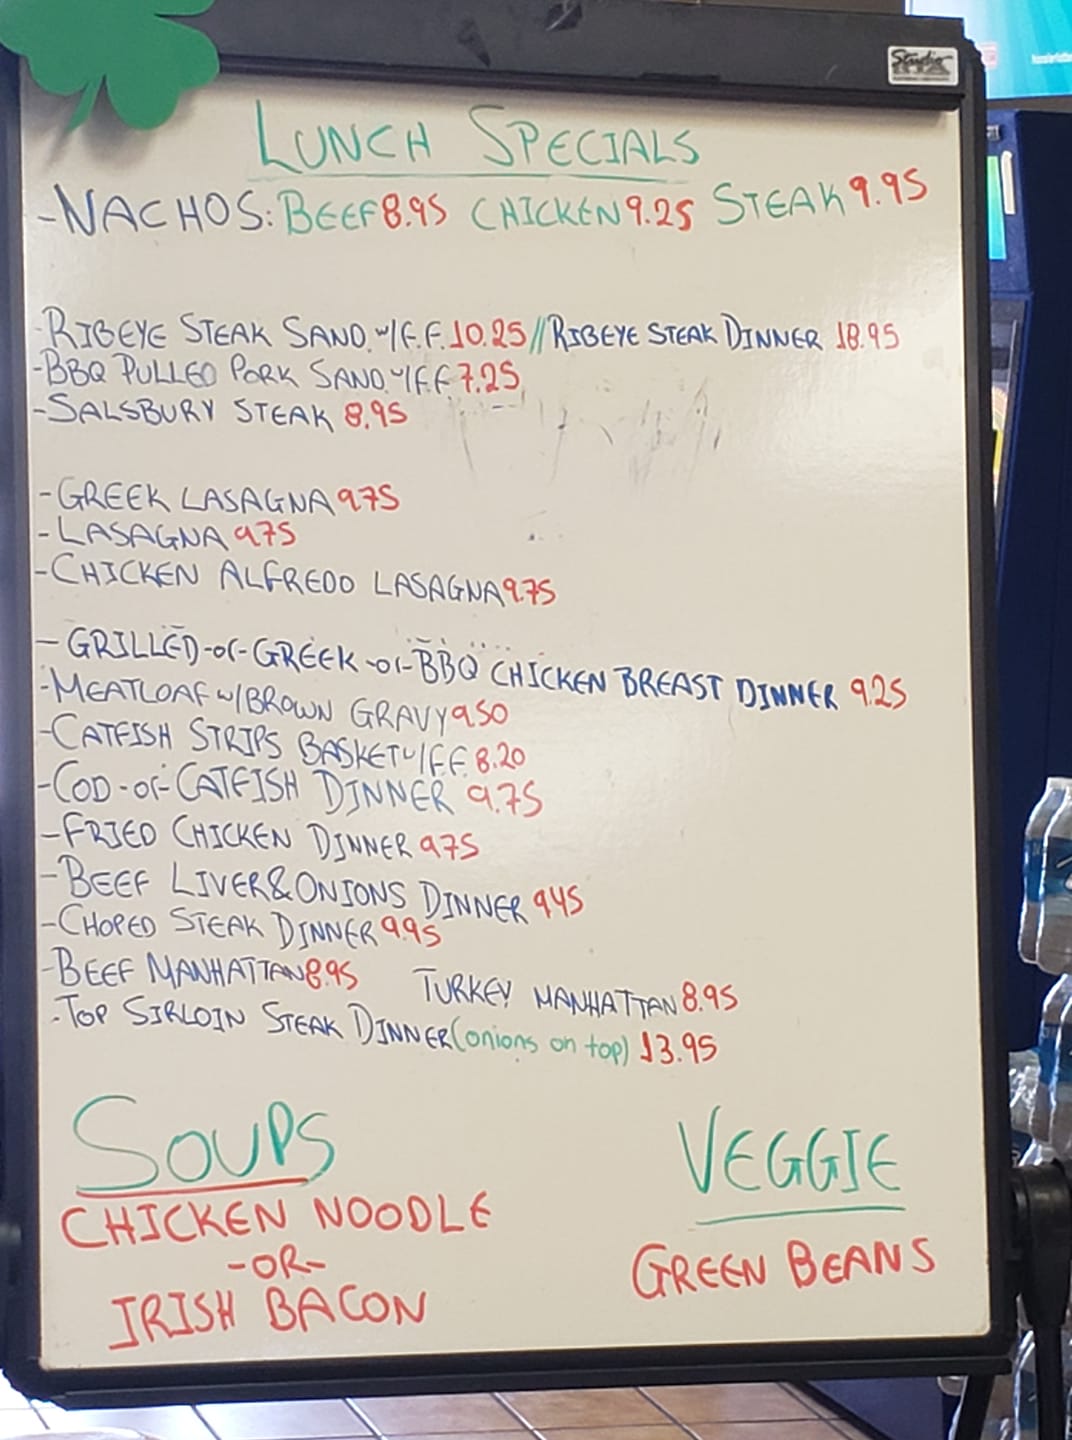 Studio
LUNCH SPECIALS
-NACHOS: BEEF 8.95 CHICKEN 9.25 STEAK 9.95
-RIBEYE STEAK SAND. w/F.F. 10.25//RIBEYE STEAK DINNER 18.95
-BBQ PULLED PORK SAND. w/F.F 7.25
-SALSBURY STEAK 8.95
-GREEK LASAGNA 9.75
-LASAGNA 9.75
-CHICKEN ALFREDO LASAGNA 9.75
-GRILLED-or-GREEK-or-BBQ CHICKEN BREAST DINNER 9.25
-MEATLOAF w/BROWN GRAVY 9.50
-CATFISH STRIPS BASKET w/F.F. 8.20
-COD-or-CATFISH DINNER 9.75
-FRIED CHICKEN DINNER 9.75
-BEEF LIVER&ONIONS DINNER 9.45
-CHOPED STEAK DINNER 9.95
-BEEF MANHATTAN 8.95 TURKEY MANHATTAN 8.95
-TOP SIRLOIN STEAK DINNER (onions on top) 13.95
SOUPS
CHICKEN NOODLE
-OR-
IRISH BACON
VEGGIE
GREEN BEANS